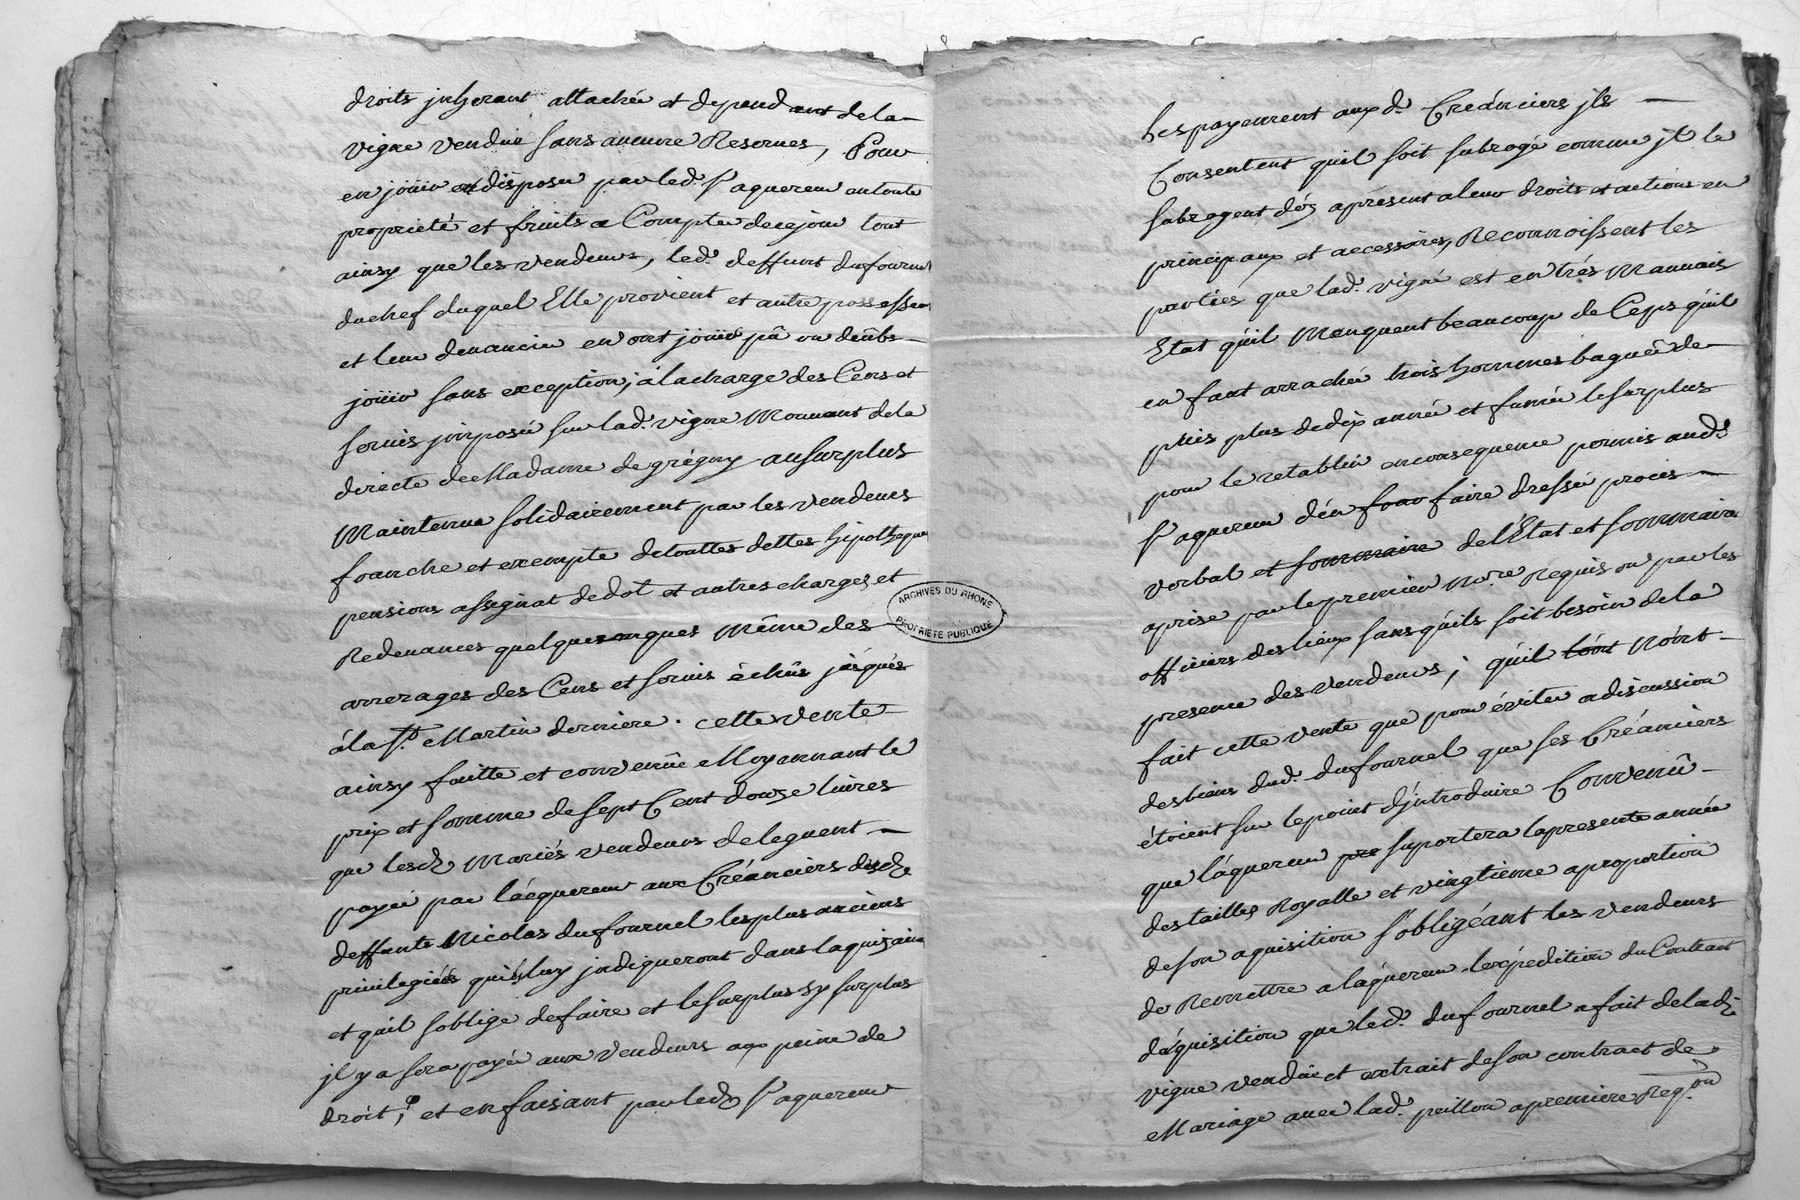 droits jnherant attachée et dependant de la
vigne vendue sans aucune Reserves, Pour
en joüir et disposer par led. Sr aquereur en toute
proprieté et fruits a Compter de cejour tout
ainsy que les vendeurs, led. deffunt Dufournel
du chef duquel Elle provient et autre possesseur
et leur devancier en ont joüir pû ou deübs
joüir sans exception; á la charge des Cens et
servis jmposée sur lad. vigne Mouvant de la
directe de Madame de grégny au surplus
Maintenue solidairement par les vendeurs
franche et exempte de touttes dettes hipotheques
pensions assignat de dot et autres charges et
Redevances quelquesonques Même des
arrerages des Cens et servis échûs jusques
á la St. Martin derniere. cette vente
ainsy faitte et convenüe Moyennant le
prix et somme de sept Cent douze livres
que lesd. Mariés vendeurs deleguent
payée par l'acquereur aux Créanciers dud.
deffunts Nicolas dufournel les plus anciens
privilegiés qui luy jndiqueront dans la quizaine
et quil soblige de faire et le surplus sy surplus
jl y a sera payée aux vendeurs aux peine de
droit; et en faisant par led. Sr aquereur
les payement aux d. Créanciers jls
Consentent quil soit subrogé comme jls le
subrogent déz apresent a leur droits et actions en
principaux et accessoires, Reconnoissent les
parties que lad. vigne est en trés Mauvais
Etat qu'il Manquent beaucoup de Ceps quil
en faut arrachée trois hommes baguée de
puis plus de dix année et fumée le surplus
pour le retablir en consequence permis aud.
Sr aquereur d'en four faire dressée procès
verbal et sommaire de l'Etat et sommaire
aprise par le premier no.re Requis ou par les
officiers des lieux sans qu'ils soit besoin de la
presence des vendeurs; qu'il l'ont n'ont
fait cette vente que pour éviter a discussion
des biens dud. dufournel que ses Créanciers
étoient sur le point d'jntroduire Convenû
que láquereur pre suportera la presente année
des tailles Royalle et vingtieme a proportion
de son aquisition S'obligéant les vendeurs
de Remettre a láquereur lexpedition du Contract
d'áquisition que led. dufournel a fait de lad.
vigne vendüe et extrait de son contract de
Mariage avec lad. peillon a premiere Req.on
ARCHIVES DU RHONE
PROPRIETE PUBLIQUE